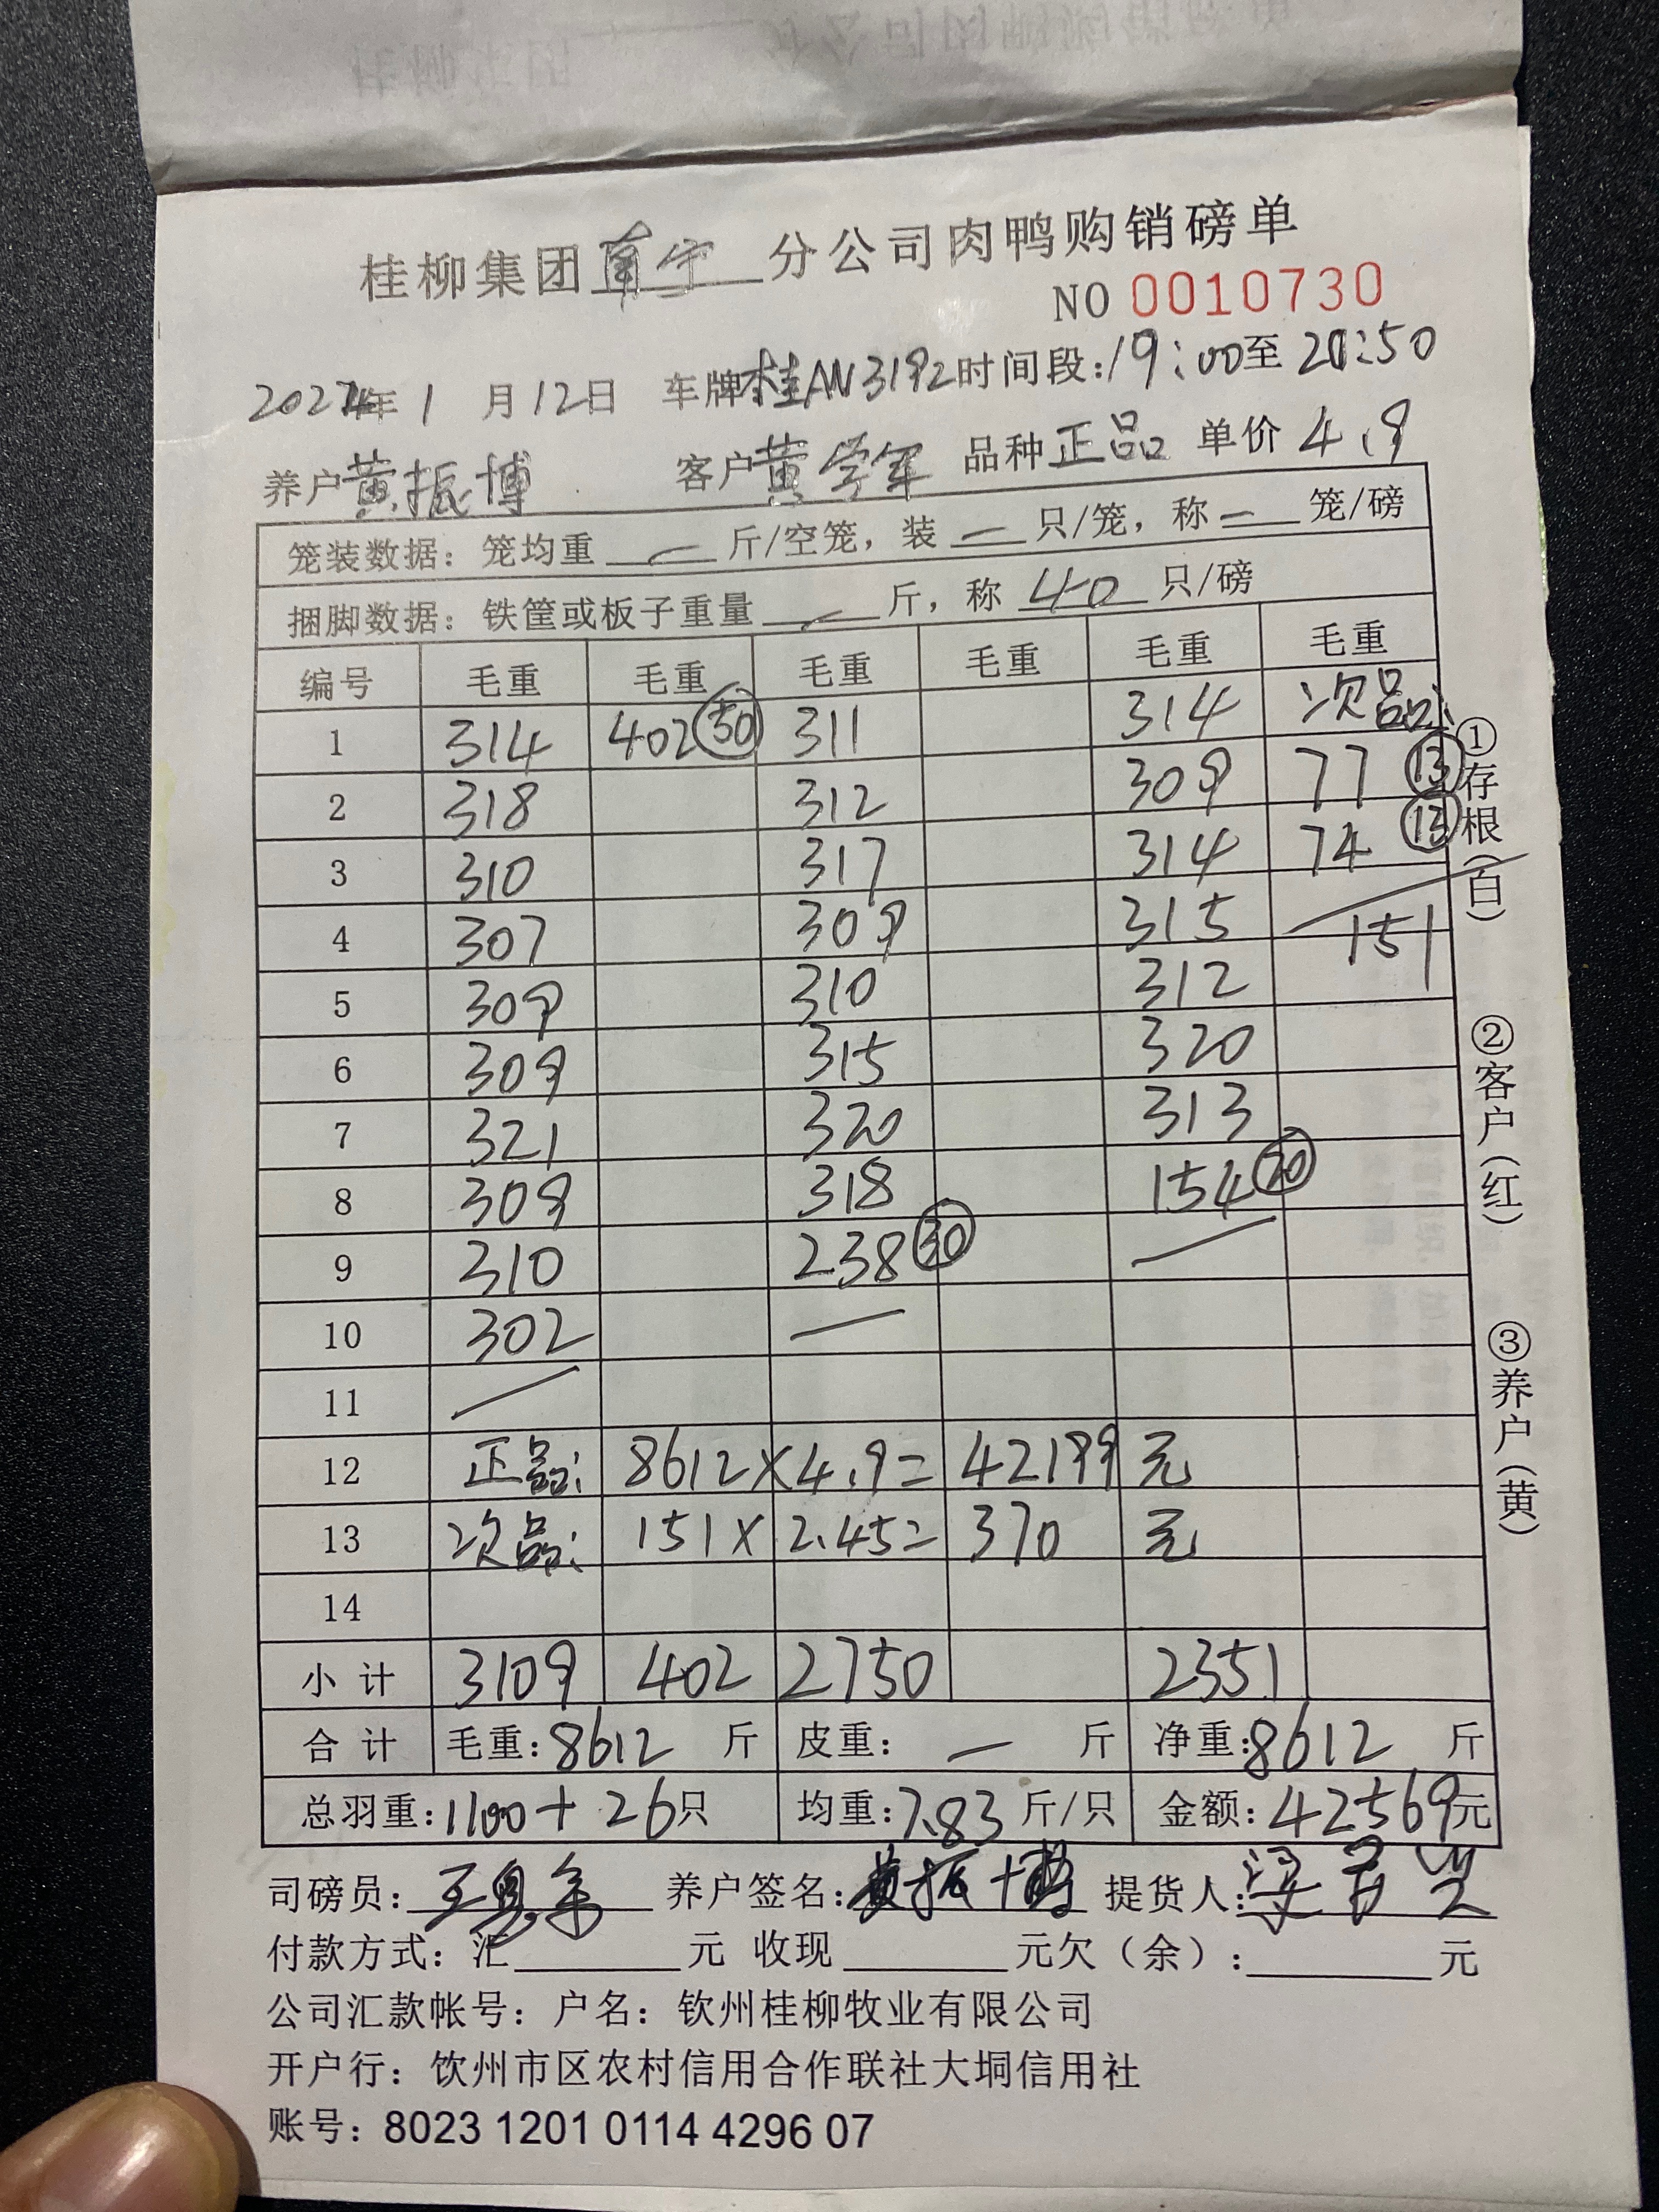 桂柳集团南宁分公司肉鸭购销磅单
NO 0010730
2024年1月12日 车牌桂AW3192时间段:19:00至20:50
养户黄振博 客户黄学军 品种正品 单价4.9
笼装数据：笼均重 — 斤/空笼，装 — 只/笼，称 — 笼/磅
捆脚数据：铁筐或板子重量 — 斤，称 40 只/磅
编号 毛重 毛重 毛重 毛重 毛重 毛重
1 314 402 (50) 311 314 次品:
2 318 312 309 77 (13)
3 310 317 314 74 (13)
4 307 309 315 151
5 309 310 312
6 309 315 320
7 321 320 313
8 309 318 154 (20)
9 310 238 (30) —
10 302 —
11 —
12 正品: 8612×4.9= 42199 元
13 次品: 151× 2.45= 370 元
14
小计 3109 402 2750 2351
合计 毛重:8612 斤 皮重: — 斤 净重:8612 斤
总羽重:1100+26只 均重:7.83斤/只 金额:42569元
司磅员: 养户签名:黄振博 提货人:
付款方式：汇 元 收现 元欠（余）: 元
公司汇款帐号：户名：钦州桂柳牧业有限公司
开户行：饮州市区农村信用合作联社大垌信用社
账号：8023 1201 0114 4296 07
①存根(白)
②客户(红)
③养户(黄)